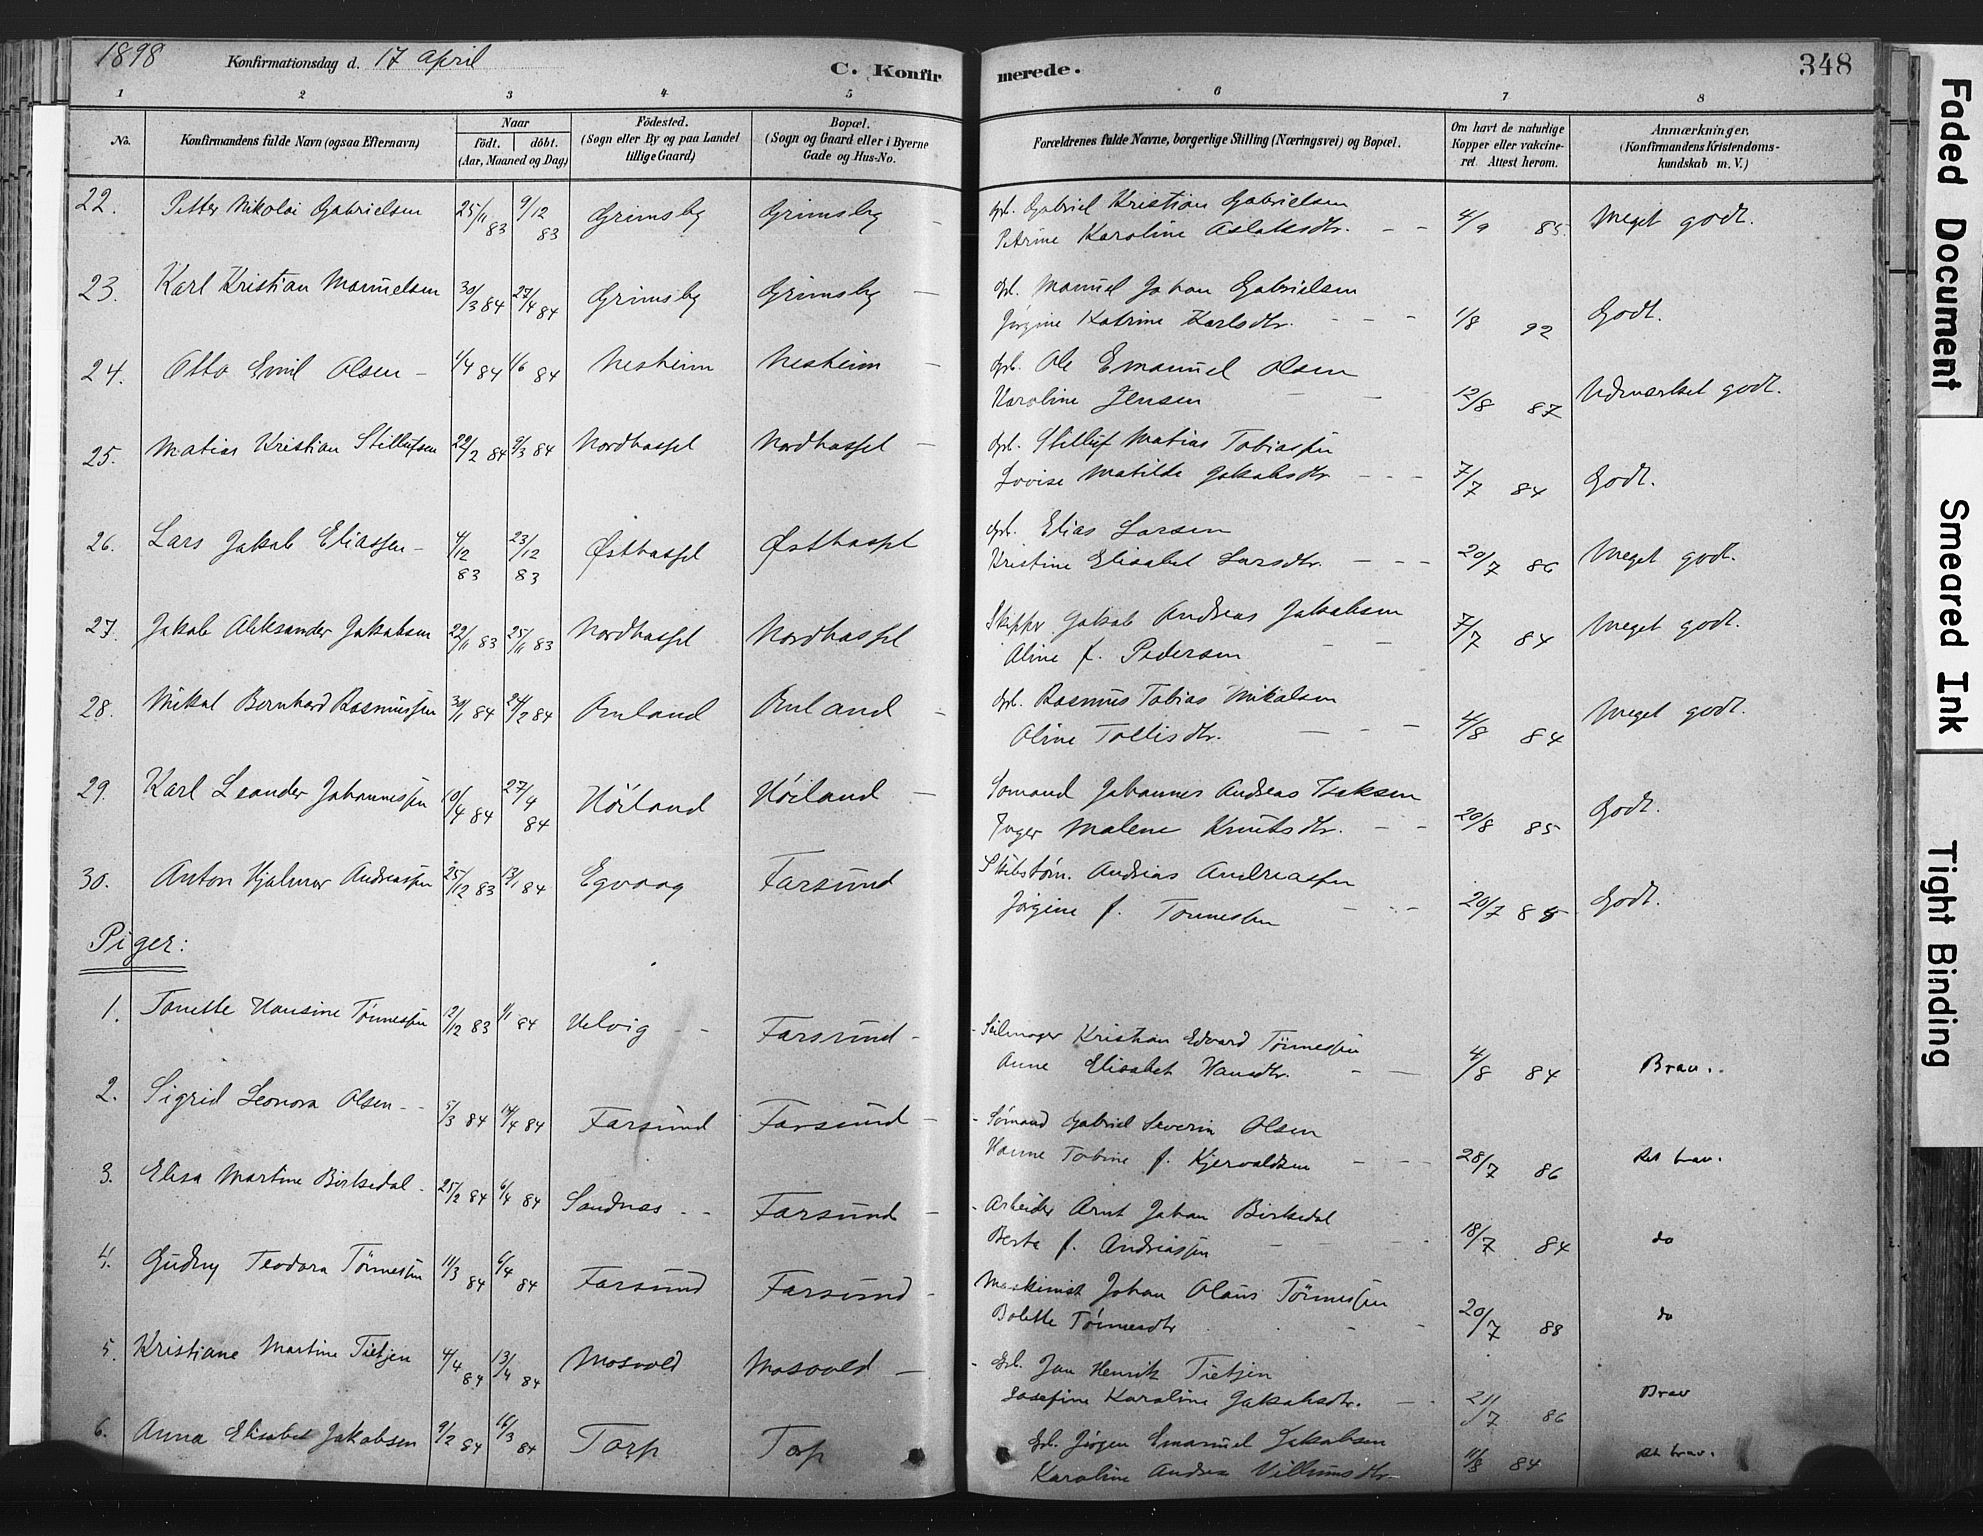 1898 Konfirmationsdag d. 17 April C. Konfirmerede. 348
1 2 3 4 5 6 7 8
No. Konfirmandens fulde Navn (ogsaa Efternavn) Naar født. døbt. (Aar, Maaned og Dag) Fødested. (Sogn eller By og paa Landet tillige Gaard) Bopæl. (Sogn og Gaard eller i Byerne Gade og Hus-No. Forældrenes fulde Navne, borgerlige Stilling (Næringsvei) og Bopæl. Om havt de naturlige Kopper eller vakcineret. Attest herom. Anmærkninger. (Konfirmandens Kristendomskundskab m. V.)
22. Petter Nikolai Gabrielsen 25/11 83 9/12 83 Grimsby Grimsby Gbl. Gabriel Kristian Gabrielsen
Petrine Karoline Aslaksdtr. 4/9 85 Meget godt.
23. Karl Kristian Manuelsen 30/3 84 27/4 84 Grimsby Grimsby Gbl. Manuel Johan Gabrielsen
Jørgine Katrine Karlsdtr. 1/8 92 Godt.
24. Otto Emil Olsen 1/4 84 1/6 84 Nesheim Nesheim Gbl. Ole Emanuel Olsen
Karoline Jensen 12/8 87 Udmærket godt.
25. Matias Kristian Stillufsen 22/2 84 9/3 84 Nordhassel Nordhassel Gbl. Stilluf Matias Tobiassen
Lovise Matilde Jakobsdtr 7/7 84 Godt.
26. Lars Jakob Eliassen 4/12 83 23/12 83 Østhassel Østhassel Gbl. Elias Larsen
Kristine Elisabet Larsdtr. 20/7 86 Meget godt.
27. Jakob Aleksander Jakobsen 22/11 83 25/11 83 Nordhassel Nordhassel Skipper Jakob Andreas Jakobsen
Aline f. Pedersen 7/7 84 Meget godt.
28. Mikal Bernhard Rasmussen 30/1 84 24/2 84 Ouland Ouland Gbl. Rasmus Tobias Mikalsen
Aline Tollisdtr. 4/8 84 Meget godt.
29. Karl Leander Johannessen 10/4 84 27/4 84 Høiland Høiland Sømand Johannes Andreas Isaksen
Inger Malene Knutsdtr. 20/8 85 Godt.
30. Anton Hjalmar Andreassen 25/12 83 13/1 84 Egvaag Farsund Skibstøm. Andreas Andreassen
Jørgine f. Tønnessen 20/7 85 Godt.
Piger:
1. Tonette Hansine Tønnessen 12/12 83 1/1 84 Helvig Farsund Seilmager Kristian Edvard Tønnessen
Anne Elisabet Hansdtr. 4/8 84 Brav.
2. Sigrid Leonora Olsen 5/3 84 14/4 84 Farsund Farsund Sømand Gabriel Severin Olsen
Hanne Tobine f. Kjervaldsen 28/7 86 Ret brav.
3. Elisa Martine Birkedal 25/2 84 6/4 84 Sandnes Farsund Arbeider Arnt Johan Birkedal
Berta f. Andreassen 18/7 84 do
4. Gudny Teodora Tønnessen 11/3 84 6/4 84 Farsund Farsund Maskinist Johan Olaus Tønnessen
Bolette Tønnesdtr 20/7 88 do
5. Kristiane Martine Tietjen 4/4 84 13/4 84 Mosvold Mosvold Gbl. Jan Henrik Tietjen
Josefine Karoline Jakobsdtr. 21/7 86 Brav
6. Anna Elisabet Jakobsen 9/2 84 16/3 84 Torp Torp Gbl. Jørgen Emanuel Jakobsen
Karoline Andrea Villumsdtr 11/8 84 Ret brav.
Faded Document
Smeared Ink
Tight Binding